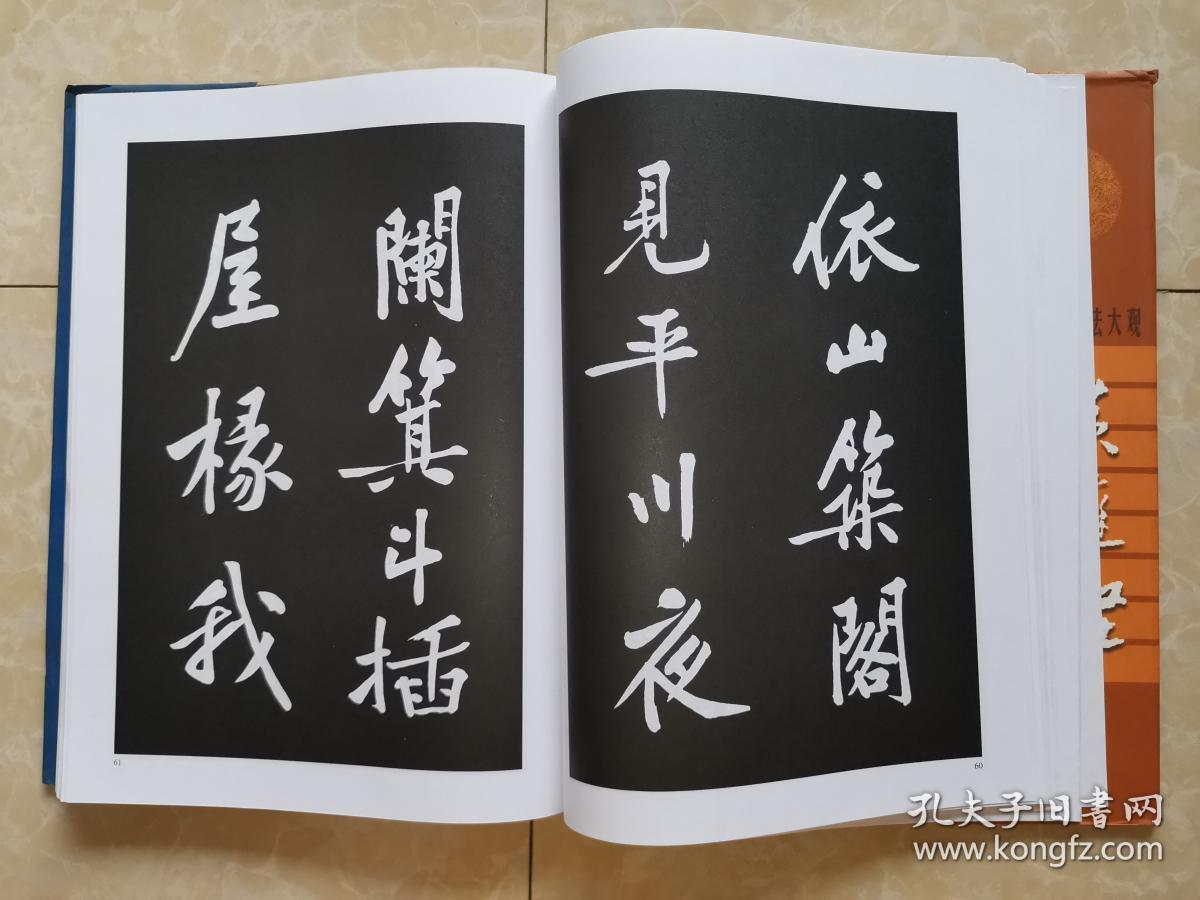 依山築閣
見平川夜
闌箕斗插
屋椽我
61
60
法大观
孔夫子旧書网
www.kongfz.com